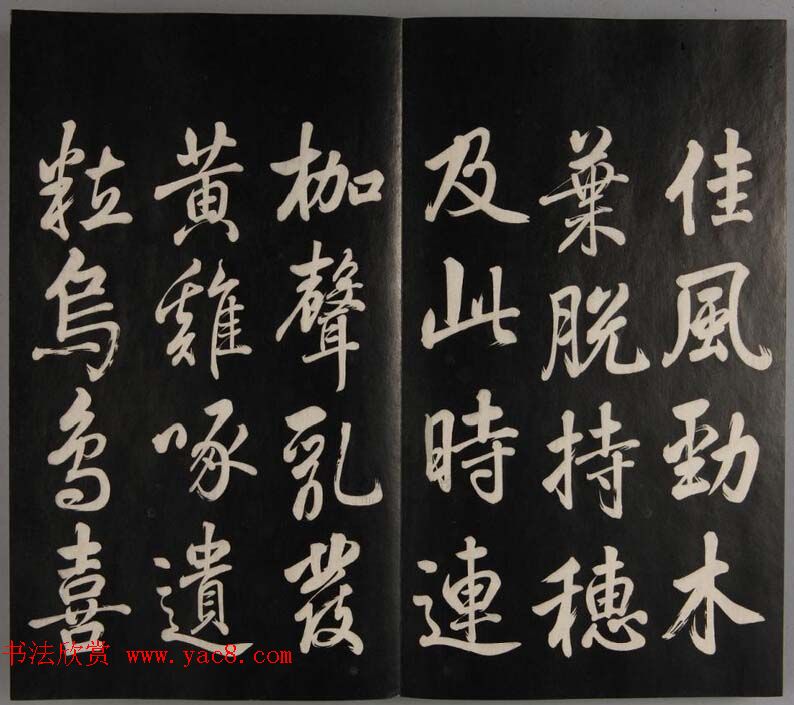 佳風勁木
葉脫持穗
及此時連
枷聲亂發
黃雞啄遺
粒烏鳥喜
书法欣赏 www.yac8.com